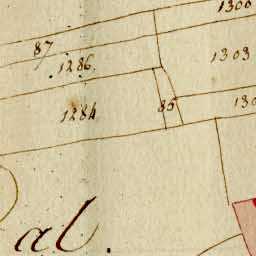 1300
87
1286.
1303
1284
85
130
al.